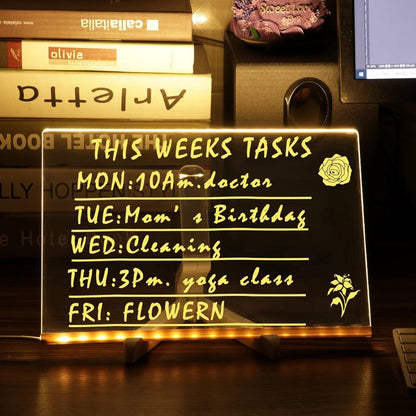 callaitalia
olivia
Arletta
THE HOTEL BOOK
Sweet Love
THIS WEEKS TASKS
MON:10Am.doctor
TUE:Mom's Birthday
WED:Cleaning
THU:3Pm. yoga class
FRI: FLOWERN